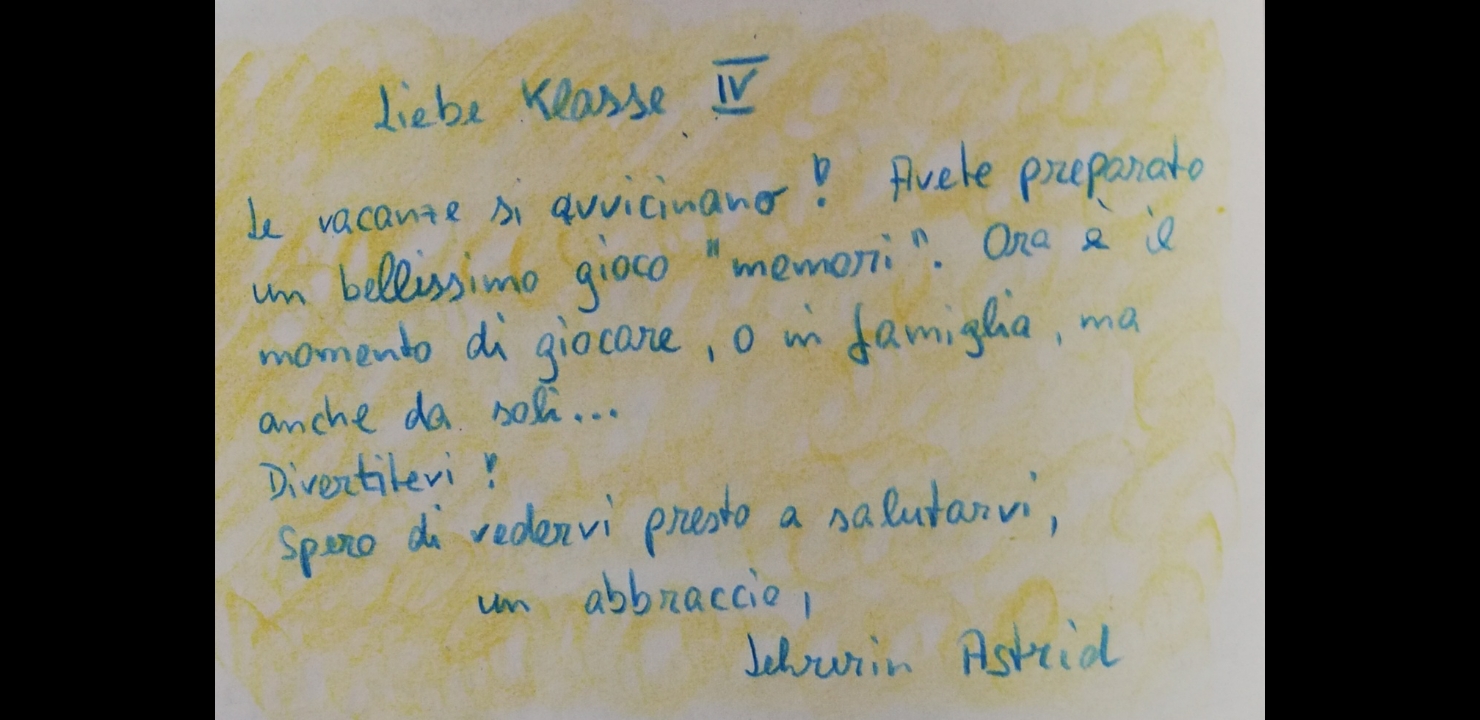 Liebe Klasse IV
Le vacanze si avvicinano! Avete preparato
un bellissimo gioco "memori". Ora è il
momento di giocare, o in famiglia, ma
anche da soli...
Divertitevi!
Spero di vedervi presto a salutarvi,
un abbraccio,
Lehrerin Astrid